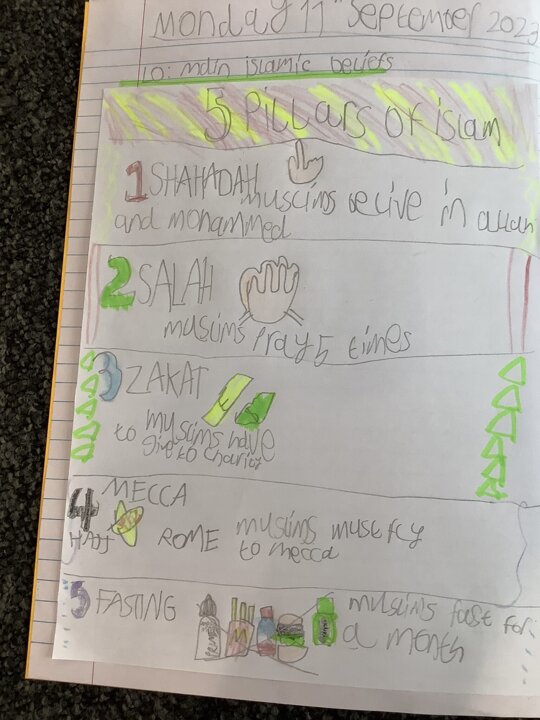 monday 11th September 2023
LO: main islamic beliefs
5 Pillars of islam
1 SHAHADAH
muslims belive in allah
and mohammed
2 SALAH
muslims Pray 5 times
3 ZAKAT
muslims have
to give to charity
MECCA
4
HAJJ ROME muslims must fly
to mecca
5 FASTING muslims fast for
a month
PRIME